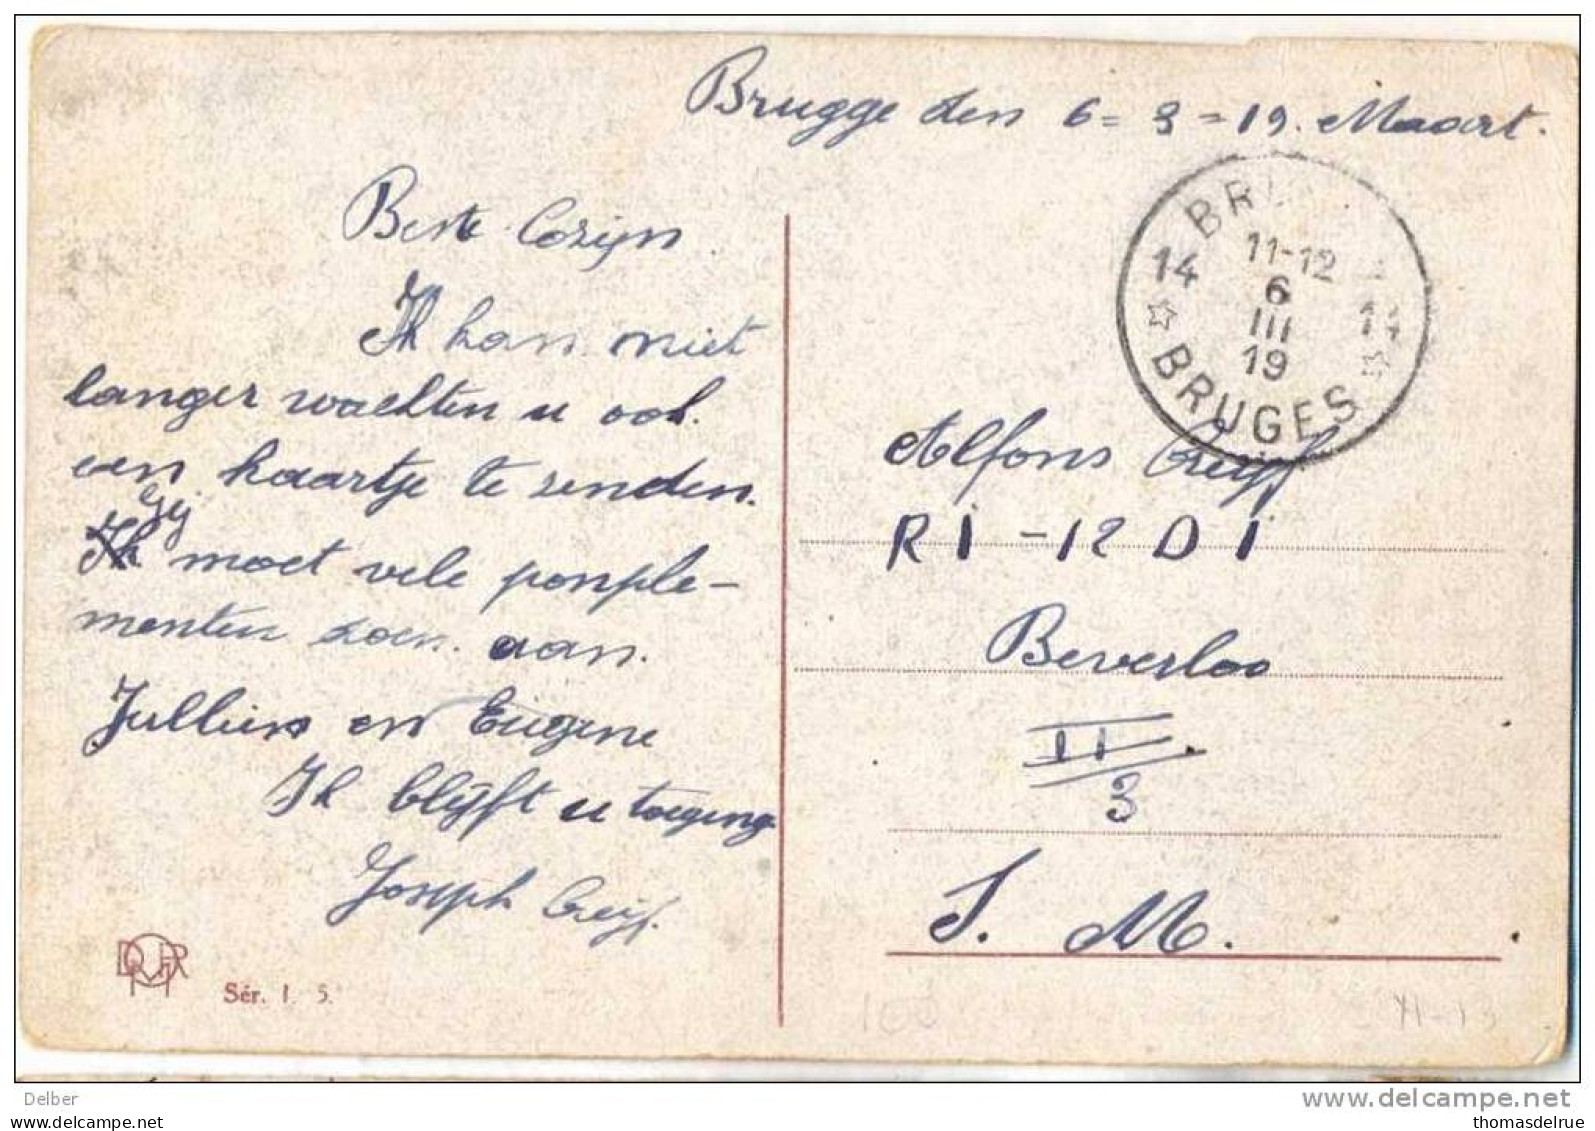 Brugge den 6=3=19. Maart.
Beste Cozijn
Ik kan niet
langer wachten u ook
een kaartje te zenden.
Gij
Ik moet vele ponple-
menten doen aan.
Jullien en Eugene
Ik blijft u toegeng
Joseph Creijf.
BR
11-12
14 6 14
III
19
☆ BRUGES ☆
Alfons Creyf
RI-12 DI
Beverloo
III
3
S. M.
Sér. 1. 5.
100
XI-13
Delber
www.delcampe.net
thomasdelrue